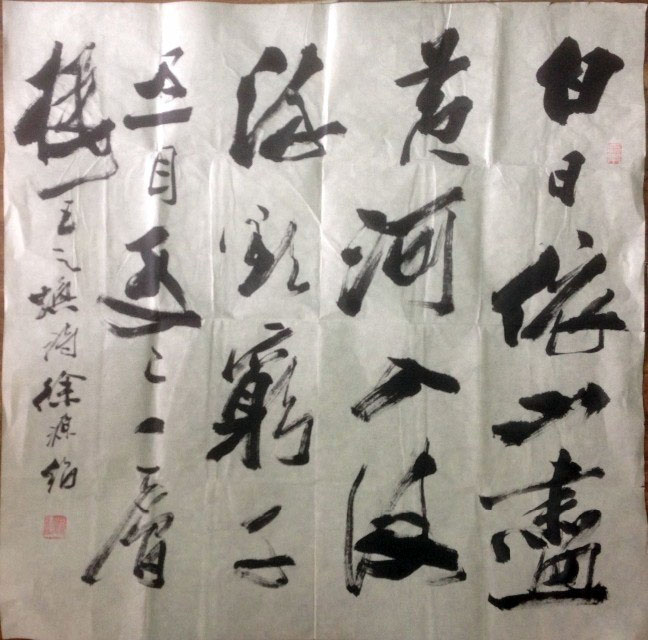 白日依山盡
黄河入海
流欲窮千
里目更上一層
樓 王之渙诗 徐